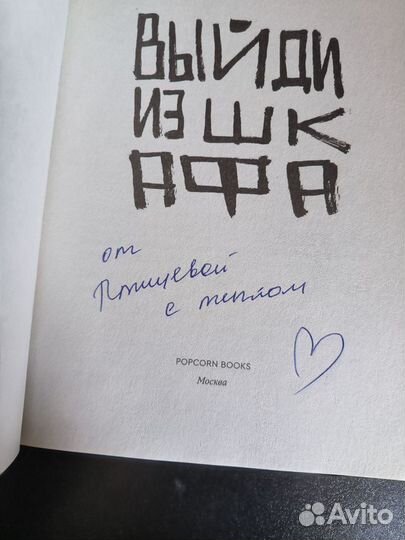 ВЫЙДИ
ИЗ ШК
АФА
от
Птицевой
с теплом
POPCORN BOOKS
Москва
Avito